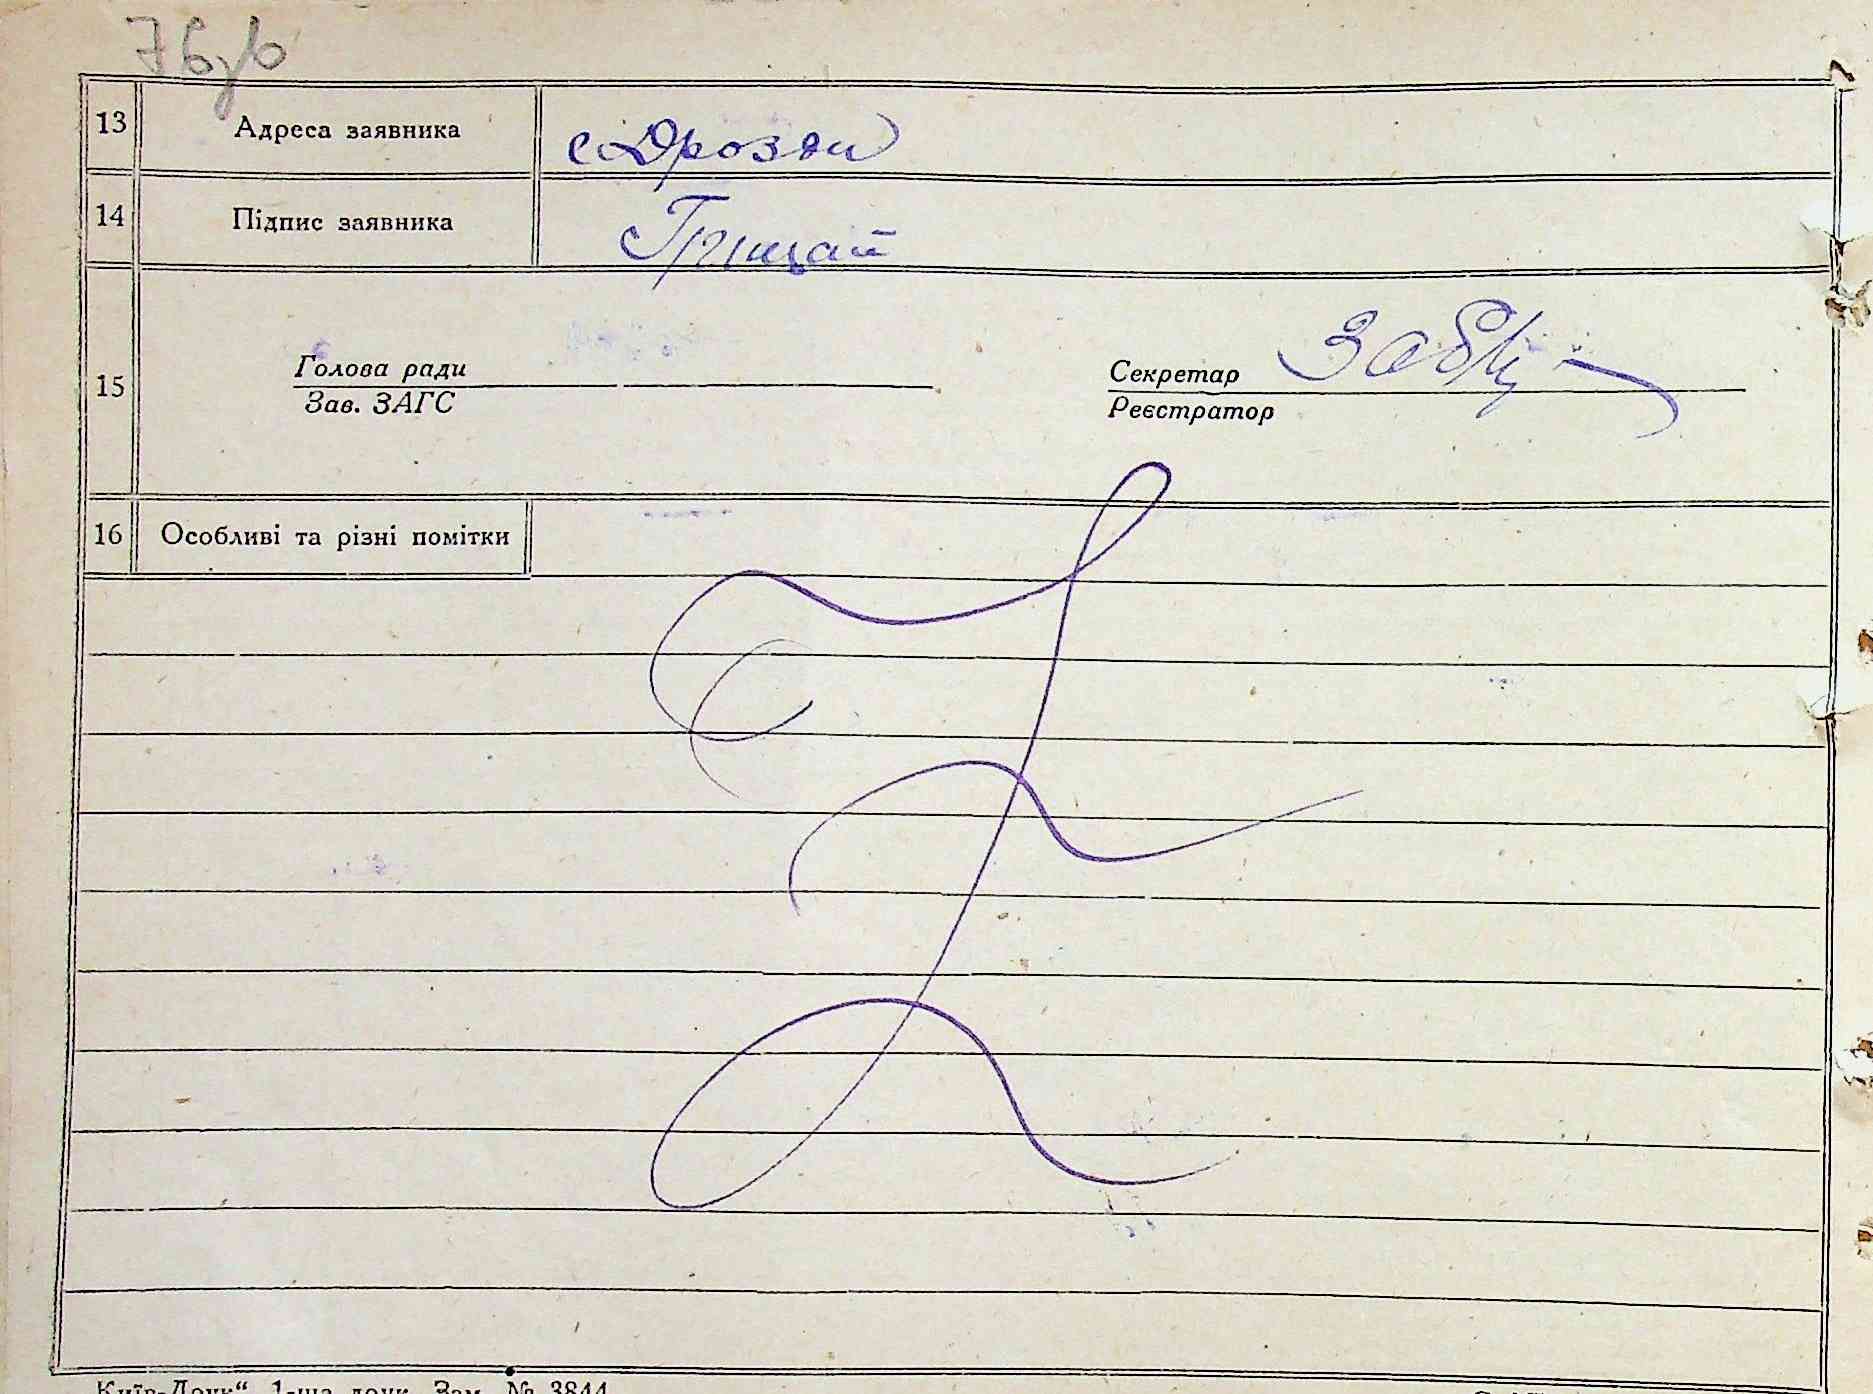 76зв
13 Адреса заявника с Дрозди
14 Підпис заявника Грицай
15 Голова ради Секретар
Зав. ЗАГС Реєстратор
16 Особливі та різні помітки
Київ-Друк“ 1-ша друк. Зам. № 3844